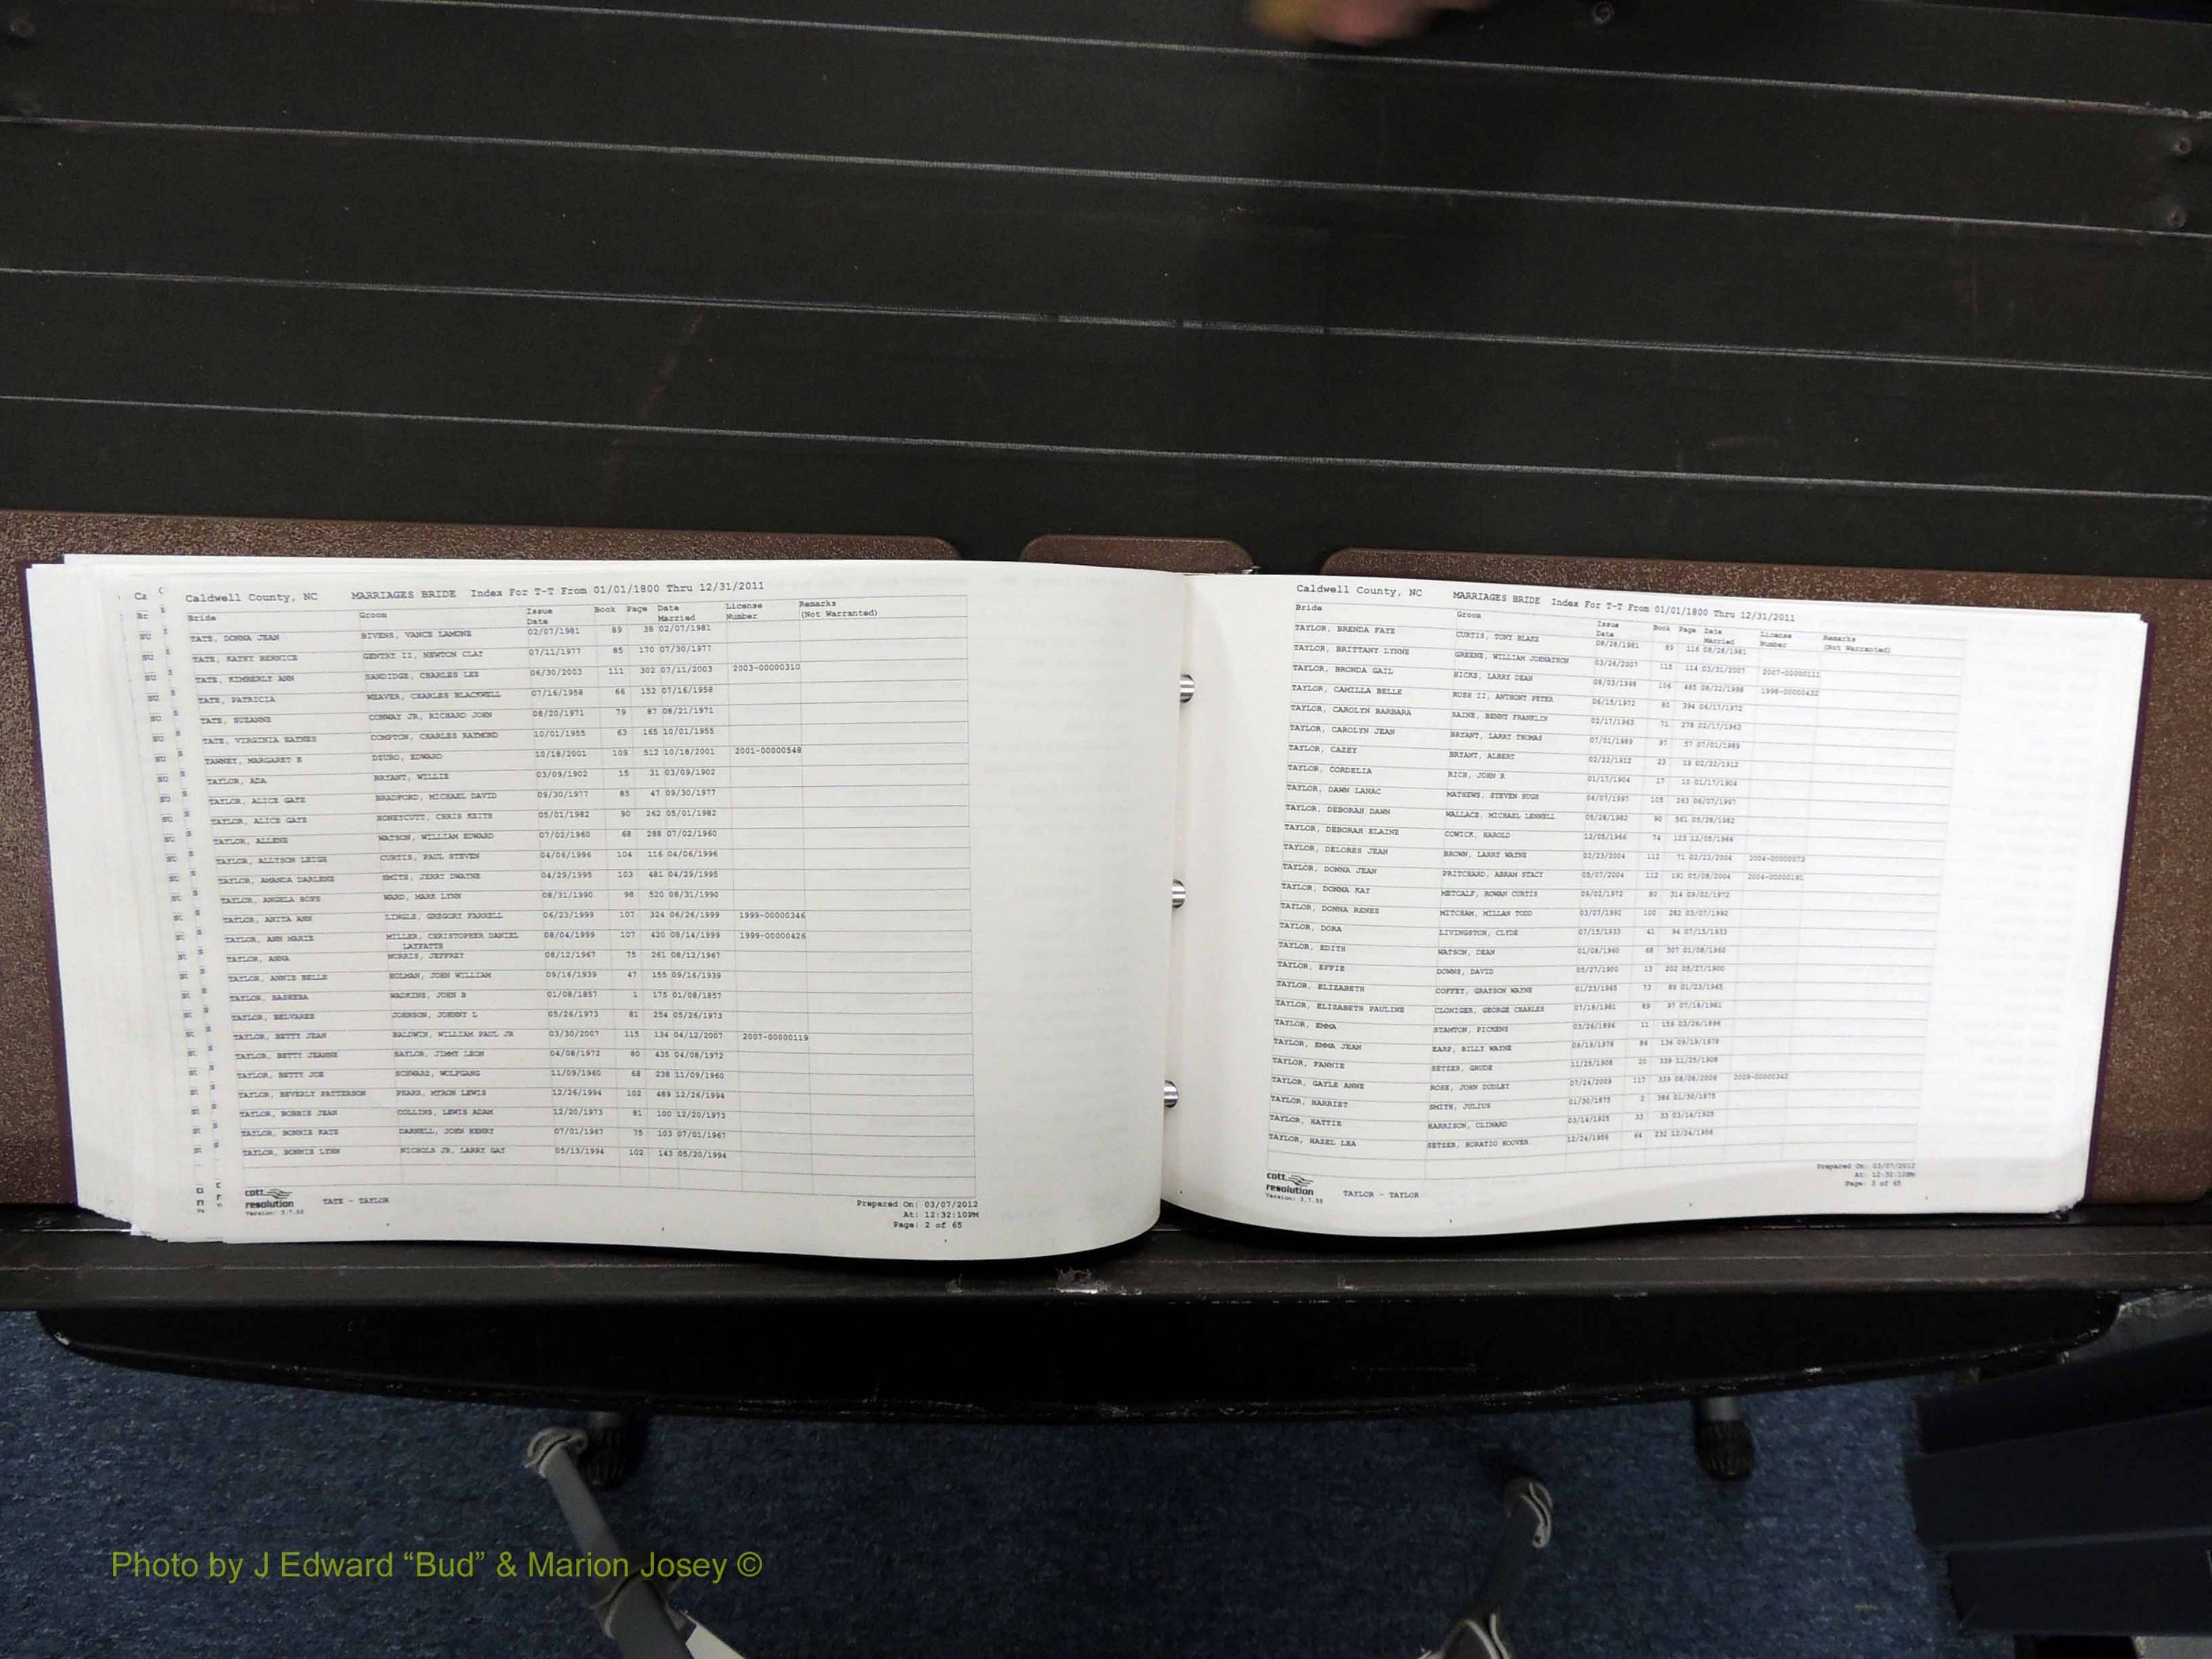 Caldwell County, NC MARRIAGES BRIDE Index For T-T From 01/01/1800 Thru 12/31/2011
Bride Groom Issue Date Book Page Date Married License Number Remarks (Not Warranted)
TATE, DONNA JEAN BIVENS, VANCE LAMONE 02/07/1981 89 38 02/07/1981
TATE, KATHY BERNICE GENTRY II, NEWTON CLAY 07/11/1977 85 170 07/30/1977
TATE, KIMBERLY ANN BANDIDGE, CHARLES LEE 06/30/2003 111 302 07/11/2003 2003-00000310
TATE, PATRICIA WEAVER, CHARLES BLACKWELL 07/16/1958 66 152 07/16/1958
TATE, SUZANNE CONWAY JR, RICHARD JOHN 08/20/1971 79 87 08/21/1971
TATE, VIRGINIA HAYNES COMPTON, CHARLES RAYMOND 10/01/1955 63 165 10/01/1955
TAWNEY, MARGARET E DZURO, EDWARD 10/18/2001 109 512 10/18/2001 2001-00000548
TAYLOR, ADA BRYANT, WILLIE 03/09/1902 15 31 03/09/1902
TAYLOR, ALICE GAYE BRADFORD, MICHAEL DAVID 09/30/1977 85 47 09/30/1977
TAYLOR, ALICE GAYE HONEYCUTT, CHRIS KEITH 05/01/1982 90 262 05/01/1982
TAYLOR, ALLENE WATSON, WILLIAM EDWARD 07/02/1960 68 288 07/02/1960
TAYLOR, ALLYSON LEIGH CURTIS, PAUL STEVEN 04/06/1996 104 116 04/06/1996
TAYLOR, AMANDA DARLENE SMITH, JERRY DWAYNE 04/29/1995 103 481 04/29/1995
TAYLOR, ANGELA HOPE WARD, MARK LYNN 08/31/1990 98 520 08/31/1990
TAYLOR, ANITA ANN LINGLE, GREGORY FARRELL 06/23/1999 107 324 06/26/1999 1999-00000346
TAYLOR, ANN MARIE MILLER, CHRISTOPHER DANIEL 08/04/1999 107 420 08/14/1999 1999-00000426
LAYFATTE
TAYLOR, ANNA NORRIS, JEFFREY 08/12/1967 75 261 08/12/1967
TAYLOR, ANNIE BELLE HOLMAN, JOHN WILLIAM 09/16/1939 47 155 09/16/1939
TAYLOR, BASHEBA WADKINS, JOHN B 01/08/1857 1 175 01/08/1857
TAYLOR, BELVAREE JOHNSON, JOHNNY L 05/26/1973 81 254 05/26/1973
TAYLOR, BETTY JEAN BALDWIN, WILLIAM PAUL JR 03/30/2007 115 134 04/12/2007 2007-00000119
TAYLOR, BETTY JEANNE SAYLOR, JIMMY LEON 04/08/1972 80 435 04/08/1972
TAYLOR, BETTY JOE SCHWARZ, WOLFGANG 11/09/1960 68 238 11/09/1960
TAYLOR, BEVERLY PATTERSON PHARR, MYRON LEWIS 12/26/1994 102 489 12/26/1994
TAYLOR, BOBBIE JEAN COLLINS, LEWIS ADAM 12/20/1973 81 100 12/20/1973
TAYLOR, BONNIE KATE DARNELL, JOHN HENRY 07/01/1967 75 103 07/01/1967
TAYLOR, BONNIE LYNN NICHOLS JR, LARRY GAY 05/13/1994 102 143 05/20/1994
cott resolution Version: 3.7.55
TATE - TAYLOR
Prepared On: 03/07/2012
At: 12:32:10PM
Page: 2 of 65
Caldwell County, NC MARRIAGES BRIDE Index For T-T From 01/01/1800 Thru 12/31/2011
Bride Groom Issue Date Book Page Date Married License Number Remarks (Not Warranted)
TAYLOR, BRENDA FAYE CURTIS, TONY BLAKE 08/28/1981 89 116 08/28/1981
TAYLOR, BRITTANY LYNNE GREENE, WILLIAM JOHNATHON 03/26/2007 115 114 03/31/2007 2007-00000111
TAYLOR, BRONDA GAIL HICKS, LARRY DEAN 08/03/1998 106 485 08/22/1998 1998-00000432
TAYLOR, CAMILLA BELLE RUSH II, ANTHONY PETER 06/15/1972 80 394 06/17/1972
TAYLOR, CAROLYN BARBARA SAINE, BENNY FRANKLIN 02/17/1963 71 278 02/17/1963
TAYLOR, CAROLYN JEAN BRYANT, LARRY THOMAS 07/01/1989 97 57 07/01/1989
TAYLOR, CAZEY BRYANT, ALBERT 02/22/1912 23 19 02/22/1912
TAYLOR, CORDELIA RICH, JOHN R 01/17/1904 17 10 01/17/1904
TAYLOR, DAWN LANAC MATHEWS, STEVEN HUGH 06/07/1997 105 263 06/07/1997
TAYLOR, DEBORAH DAWN WALLACE, MICHAEL LENNELL 05/28/1982 90 561 05/28/1982
TAYLOR, DEBORAH ELAINE COWICK, HAROLD 12/05/1966 74 125 12/05/1966
TAYLOR, DELORES JEAN BROWN, LARRY WAYNE 02/23/2004 112 71 02/23/2004 2004-00000073
TAYLOR, DONNA JEAN PRITCHARD, ABRAM STACY 05/07/2004 112 191 05/08/2004 2004-00000191
TAYLOR, DONNA KAY METCALF, ROWAN CURTIS 09/02/1972 80 314 09/02/1972
TAYLOR, DONNA RENEE MITCHAM, MILLAN TODD 03/07/1992 100 282 03/07/1992
TAYLOR, DORA LIVINGSTON, CLYDE 07/15/1933 41 94 07/15/1933
TAYLOR, EDITH WATSON, DEAN 01/08/1960 68 307 01/08/1960
TAYLOR, EFFIE DOWNS, DAVID 05/27/1900 13 202 05/27/1900
TAYLOR, ELIZABETH COFFEY, GRAYSON WAYNE 01/23/1965 73 89 01/23/1965
TAYLOR, ELIZABETH PAULINE CLONIGER, GEORGE CHARLES 07/18/1981 89 97 07/18/1981
TAYLOR, EMMA STANTON, PICKENS 03/26/1896 11 159 03/26/1896
TAYLOR, EMMA JEAN EARP, BILLY WAYNE 09/19/1978 86 136 09/19/1978
TAYLOR, FANNIE SETZER, GRUDE 11/25/1908 20 339 11/25/1908
TAYLOR, GAYLE ANNE ROSE, JOHN DUDLEY 07/24/2009 117 339 08/08/2009 2009-00000342
TAYLOR, HARRIET SMITH, JULIUS 01/30/1875 2 386 01/30/1875
TAYLOR, HATTIE HARRISON, CLINARD 03/14/1925 33 33 03/14/1925
TAYLOR, HAZEL LEA SETZER, HORATIO HOOVER 12/24/1956 64 232 12/24/1956
cott resolution Version: 3.7.55
TAYLOR - TAYLOR
Prepared On: 03/07/2012
At: 12:32:10PM
Page: 3 of 65
Photo by J Edward “Bud” & Marion Josey ©